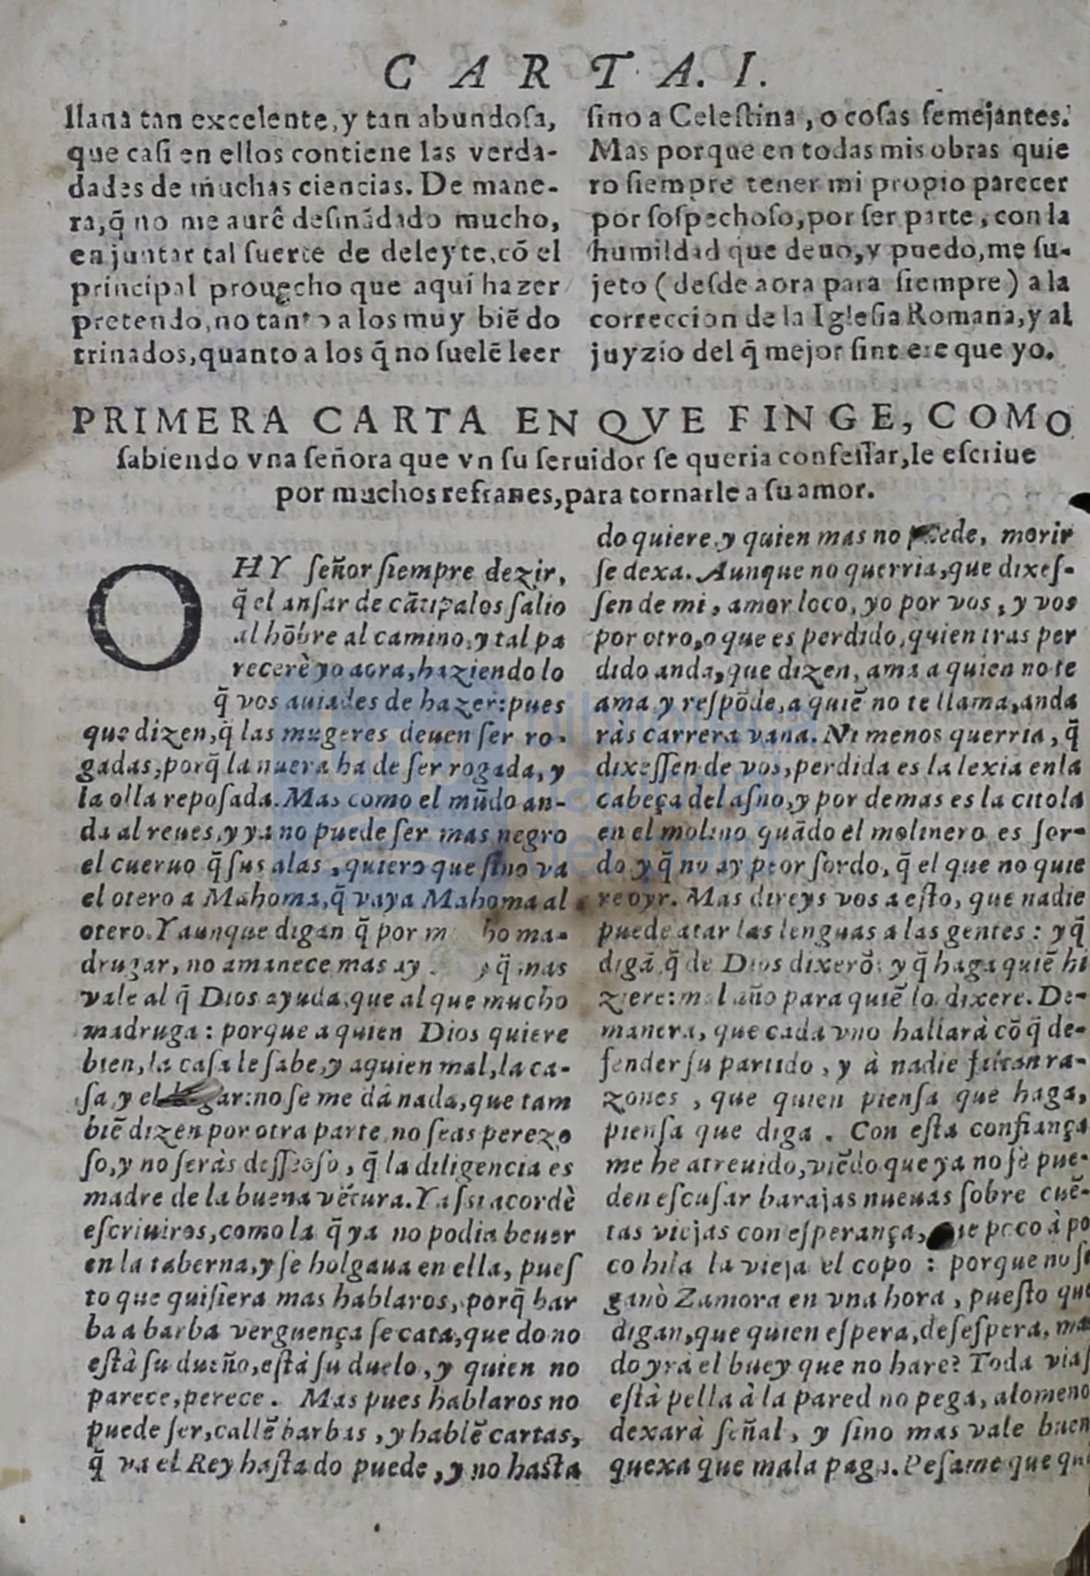 CARTA. I.
llana tan excelente, y tan abundosa,
que casi en ellos contiene las verda-
dades de muchas ciencias. De mane-
ra, q̃ no me aurê desmãdado mucho,
en juntar tal suerte de deleyte, cõ el
principal prouecho que aquí hazer
pretendo, no tanto a los muy biẽ do
trinados, quanto a los q̃ no suelẽ leer
sino a Celestina, o cosas semejantes.
Mas porque en todas mis obras quie
ro siempre tener mi propio parecer
por sospechoso, por ser parte, con la
humildad que deuo, y puedo, me su-
jeto (desde aora para siempre) a la
correccion de la Iglesia Romana, y al
juyzio del q̃ mejor sintiere que yo.
PRIMERA CARTA EN QVE FINGE, COMO
sabiendo vna señora que vn su seruidor se queria confessar, le escriue
por muchos refranes, para tornarle a su amor.
OHY señor siempre dezir,
q̃ el ansar de cãtipalos salio
al hõbre al camino, y tal pa
recerè yo aora, haziendo lo
q̃ vos auiades de hazer: pues
que dizen, q̃ las mugeres deuen ser ro-
gadas, porq̃ la nuera ha de ser rogada, y
la olla reposada. Mas como el mũdo an-
da al reues, y ya no puede ser mas negro
el cueruo q̃ sus alas, quiero que sino va
el otero a Mahoma, q̃ vaya Mahoma al
otero. Y aunque digan q̃ por m ho ma-
drugar, no amanece mas ay q̃ mas
vale al q̃ Dios ayuda, que al que mucho
madruga: porque a quien Dios quiere
bien, la casa le sabe, y aquien mal, la ca-
sa, y el gar: no se me dà nada, que tam
biẽ dizen por otra parte, no seas perezo
so, y no seràs desseoso, q̃ la diligencia es
madre de la buena vẽtura. Y assi acordè
escriuiros, como la q̃ ya no podia beuer
en la taberna, y se holgaua en ella, pues
to que quisiera mas hablaros, porq̃ bar
ba a barba verguença se cata, que do no
està su dueño, està su duelo, y quien no
parece, perece. Mas pues hablaros no
puede ser, callẽ barbas, y hablẽ cartas,
q̃ va el Rey hasta do puede, y no hasta
do quiere, y quien mas no puede, morir
se dexa. Aunque no querria, que dixes-
sen de mi, amor loco, yo por vos, y vos
por otro, o que es perdido, quien tras per
dido anda, que dizen, ama a quien no te
ama, y respõde, a quiẽ no te llama, anda
ràs carrera vana. Ni menos querria, q̃
dixessen de vos, perdida es la lexia en la
cabeça del asno, y por demas es la citola
en el molino quãdo el molinero es sor-
do, y q̃ no ay peor sordo, q̃ el que no quie
re oyr. Mas direys vos a esto, que nadie
puede atar las lenguas a las gentes: y q̃
digã, q̃ de Dios dixerõ: y q̃ haga quiẽ hi
ziere: mal año para quiẽ lo dixere. De-
manera, que cada vno hallarà cõ q̃ de-
fender su partido, y à nadie faltan ra-
zones, que quien piensa que haga,
piensa que diga. Con esta confiança
me he atreuido, viẽdo que ya no se pue-
den escusar barajas nueuas sobre cuẽ-
tas viejas con esperança, ue poco à po
co hila la vieja el copo: porque no se
ganò Zamora en vna hora, puesto que
digan, que quien espera, desespera, mas
do yrà el buey que no hare? Toda vias
està pella à la pared no pega, alomeno
dexarà señal, y sino mas vale buen
quexa que mala paga. Pesame que qui